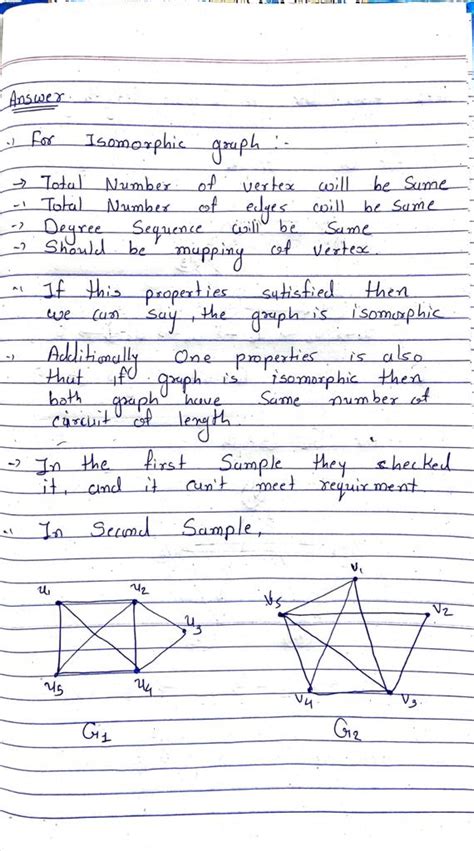 Answer
→ For Isomorphic graph :-
→ Total Number of vertex will be Same
→ Total Number of edges will be Same
→ Degree Sequence will be Same
→ Should be mapping of vertex.
→ If this properties satisfied then
we can say, the graph is isomorphic
→ Additionally One properties is also
that if graph is isomorphic then
both graph have Same number of
circuit of length.
→ In the first Sample they checked
it, and it can't meet requirment.
→ In Second Sample,
u₁ u₂ u₃ u₄ u₅
G₁
V₁ V₂ V₃ V₄ V₅
G₂